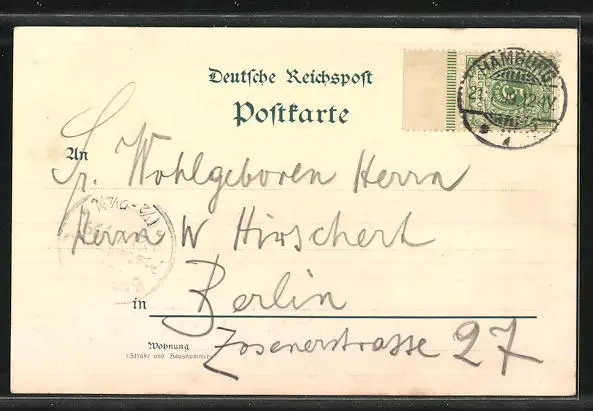 Deutsche Reichspost
Postkarte
HAMBURG
1
An
Sr. Wohlgeboren Herrn
Herrn W Hirschert
in Berlin
Wohnung
(Straße und Hausnummer)
Zossenerstrasse 27